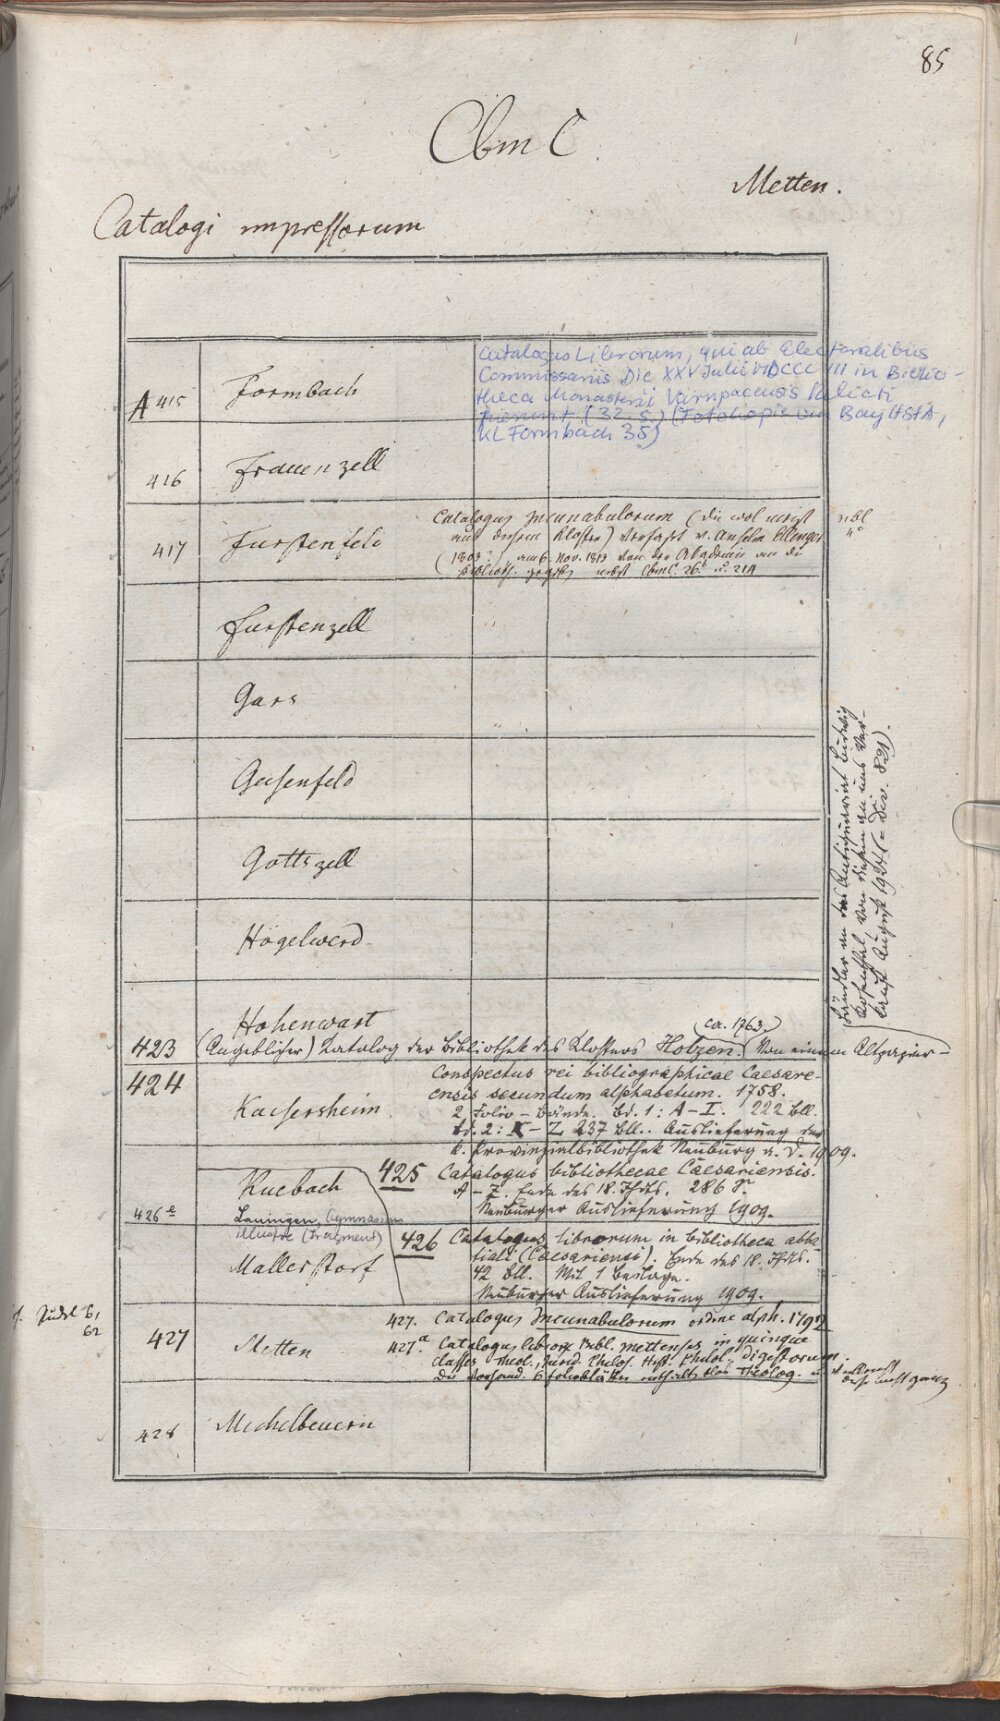 85
Cbm C
Metten.
Catalogi impressorum
A 415 Formbach
Catalogus Librorum, qui ab Electoralibus
Commissariis Die XXV Julii MDCCCIII in Biblio-
theca Monasterii Varnpacensis relicti
fuerunt (32 S.) (Fotokopie von BayHStA,
KL Formbach 35)
416 Frauenzell
417 Furstenfeld
Catalogus Incunabulorum (die wol meist
aus diesem Kloster) verfasst v. Anselm Ellinger
(1803 am 6. Nov. 1813 von der Akademie an die
Biblioth. nebst Cbm C. 26 u. 21A
Furstenzell
Gars
Geisenfeld
Gottszell
Högelwerd
Hohenwart
423 (Angeblicher) Katalog der Bibliothek des Klosters Holzen. (ca. 1763.) (Von einem Altpapier-
händler an das Antiquariat Ludwig
Rosenthal, von diesem an uns ver-
kauft August 1924 =
424 Kaisersheim
Conspectus rei bibliographicae Caesare-
ensis secundum alphabetum. 1758.
2 Folio-Bände. Bd. 1: A–I. 222 Bll.
Bd. 2: K–Z 237 Bll.. Auslieferung der
k. Provinzialbibliothek Neuburg a. D. 1909.
Kuebach
425 Catalogus bibliothecae Caesariensis.
A–Z. Ende des 18. Jhdts. 286 S.
Neuburger Auslieferung 1909.
426e Lauingen, Gymnasium
illustre (Fragment)
Mallerstorf
426 Catalogus librorum in bibliotheca abba-
tiali (Caesariensi). Ende des 18. Jhdts.
42 Bll. Mit 1 Beilage.
Neuburger Auslieferung 1909.
427 Metten
427. Catalogus Incunabulorum ordine alph. 1792
427a Catalogus libror. Bibl. Mettensis in quinque
classes Theol., Jurid. Philos. Hist. Philol. digestorum.
Die vorhand. 6 Folioblätter enthalten blos Theolog.
428 Michelbeuern